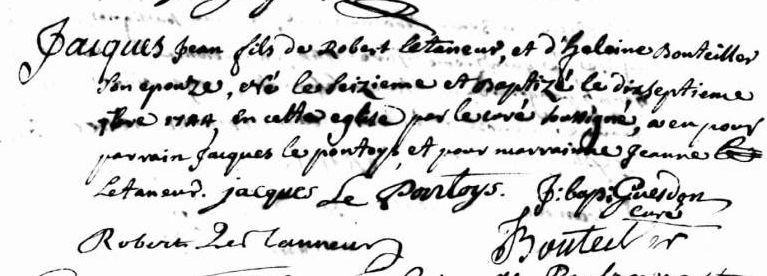 Jacques Jean fils de Robert letaneur, et d'heleine Bouteiller
son epouze, né le seizieme et Baptizé le dixseptieme
7bre 1744, en cette eglise par le curé soussigné, a eu pour
parrain Jacques le pontoys, et pour marrainne Jeanne
Letaneur. jacques Le Pontoys. J: bap: Guesdon
curé
Robert Le tanneur Bouteiller